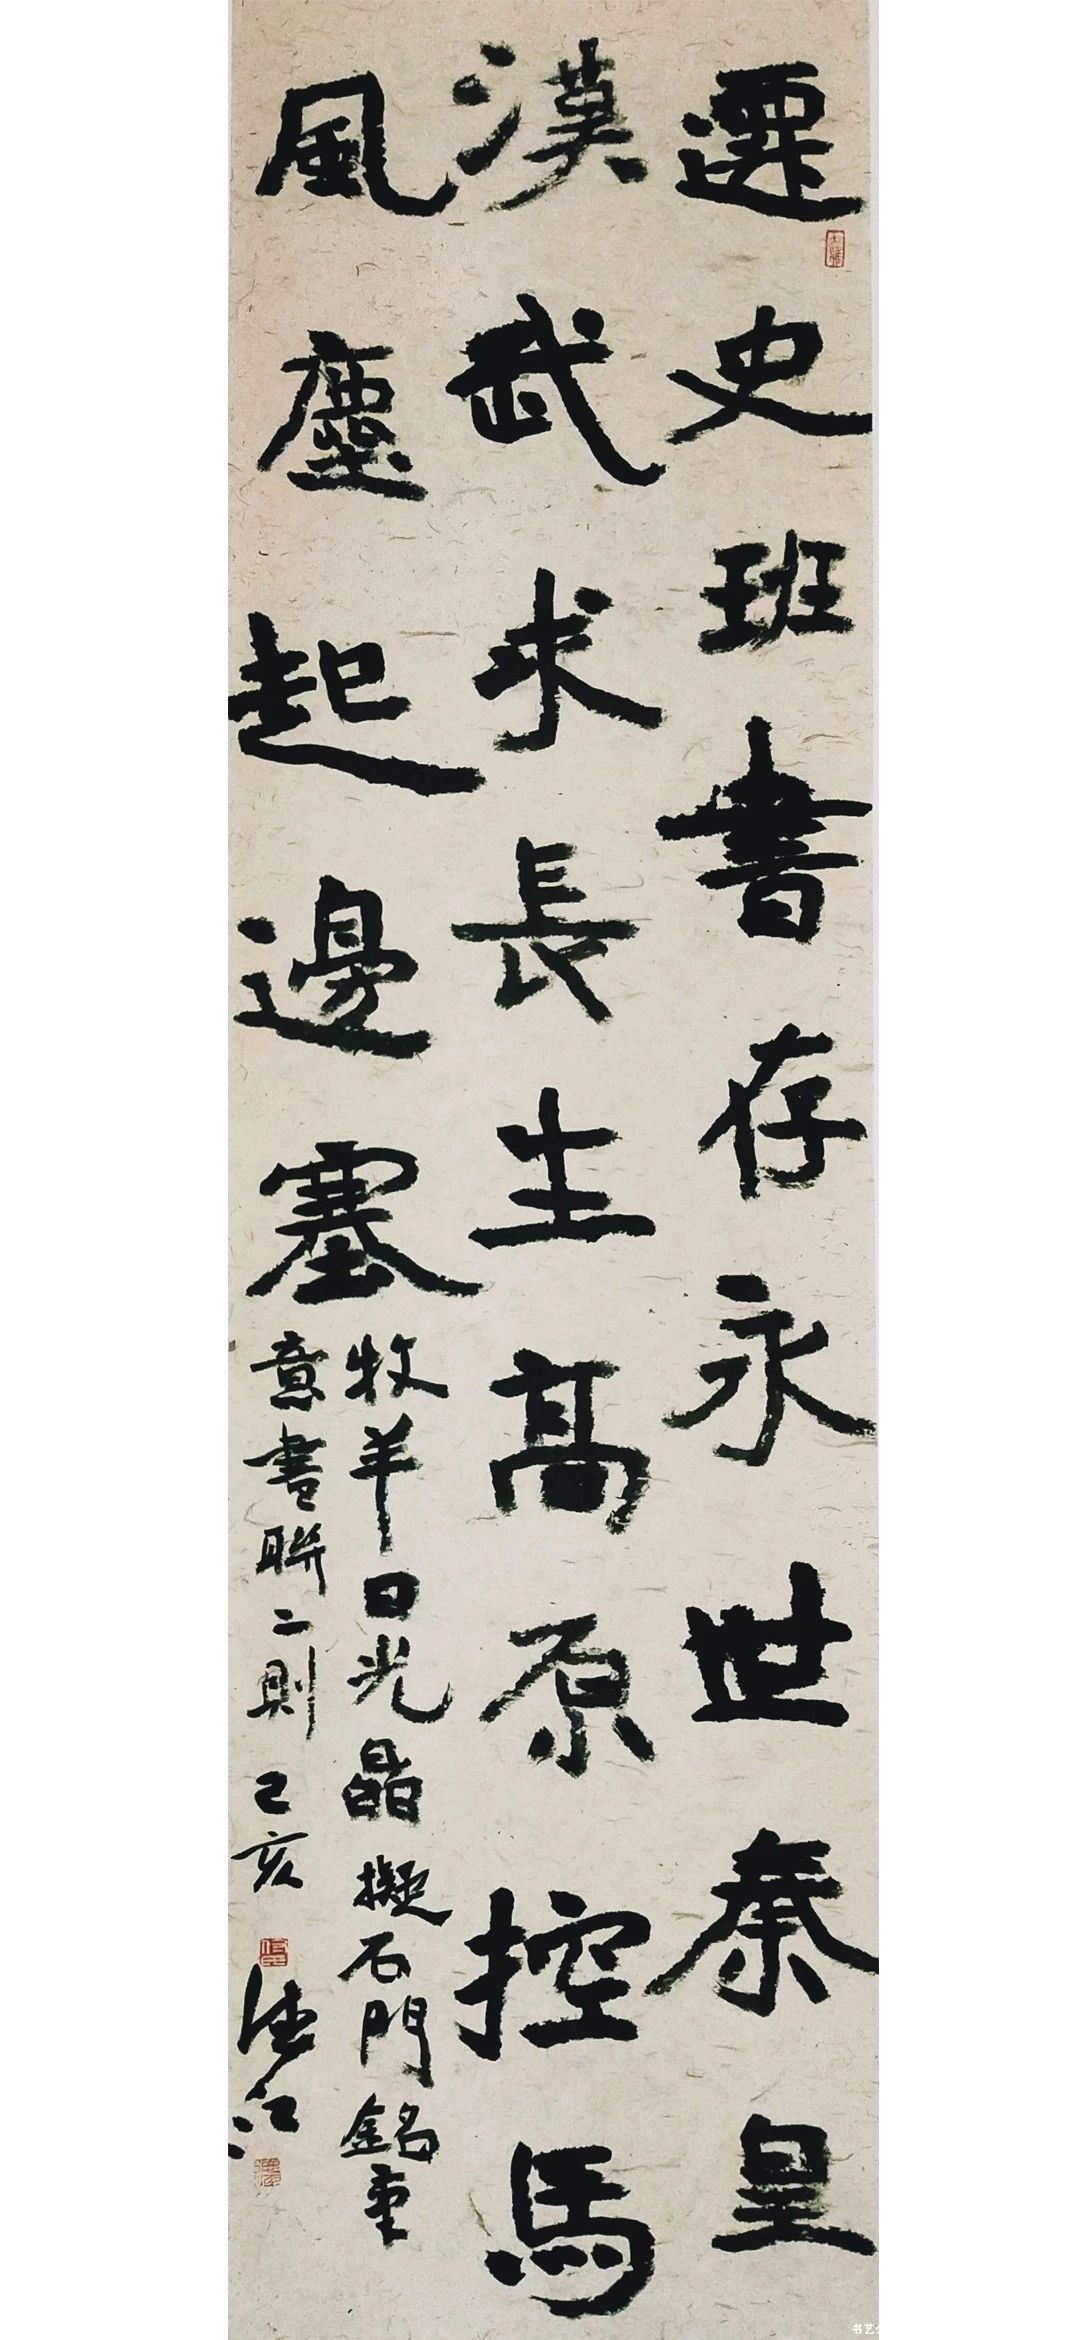 遷史班書存永世秦皇
漢武求長生高原控馬
風塵起邊塞
牧羊日光晶擬石門銘
意書聯二則己亥
德江
书艺